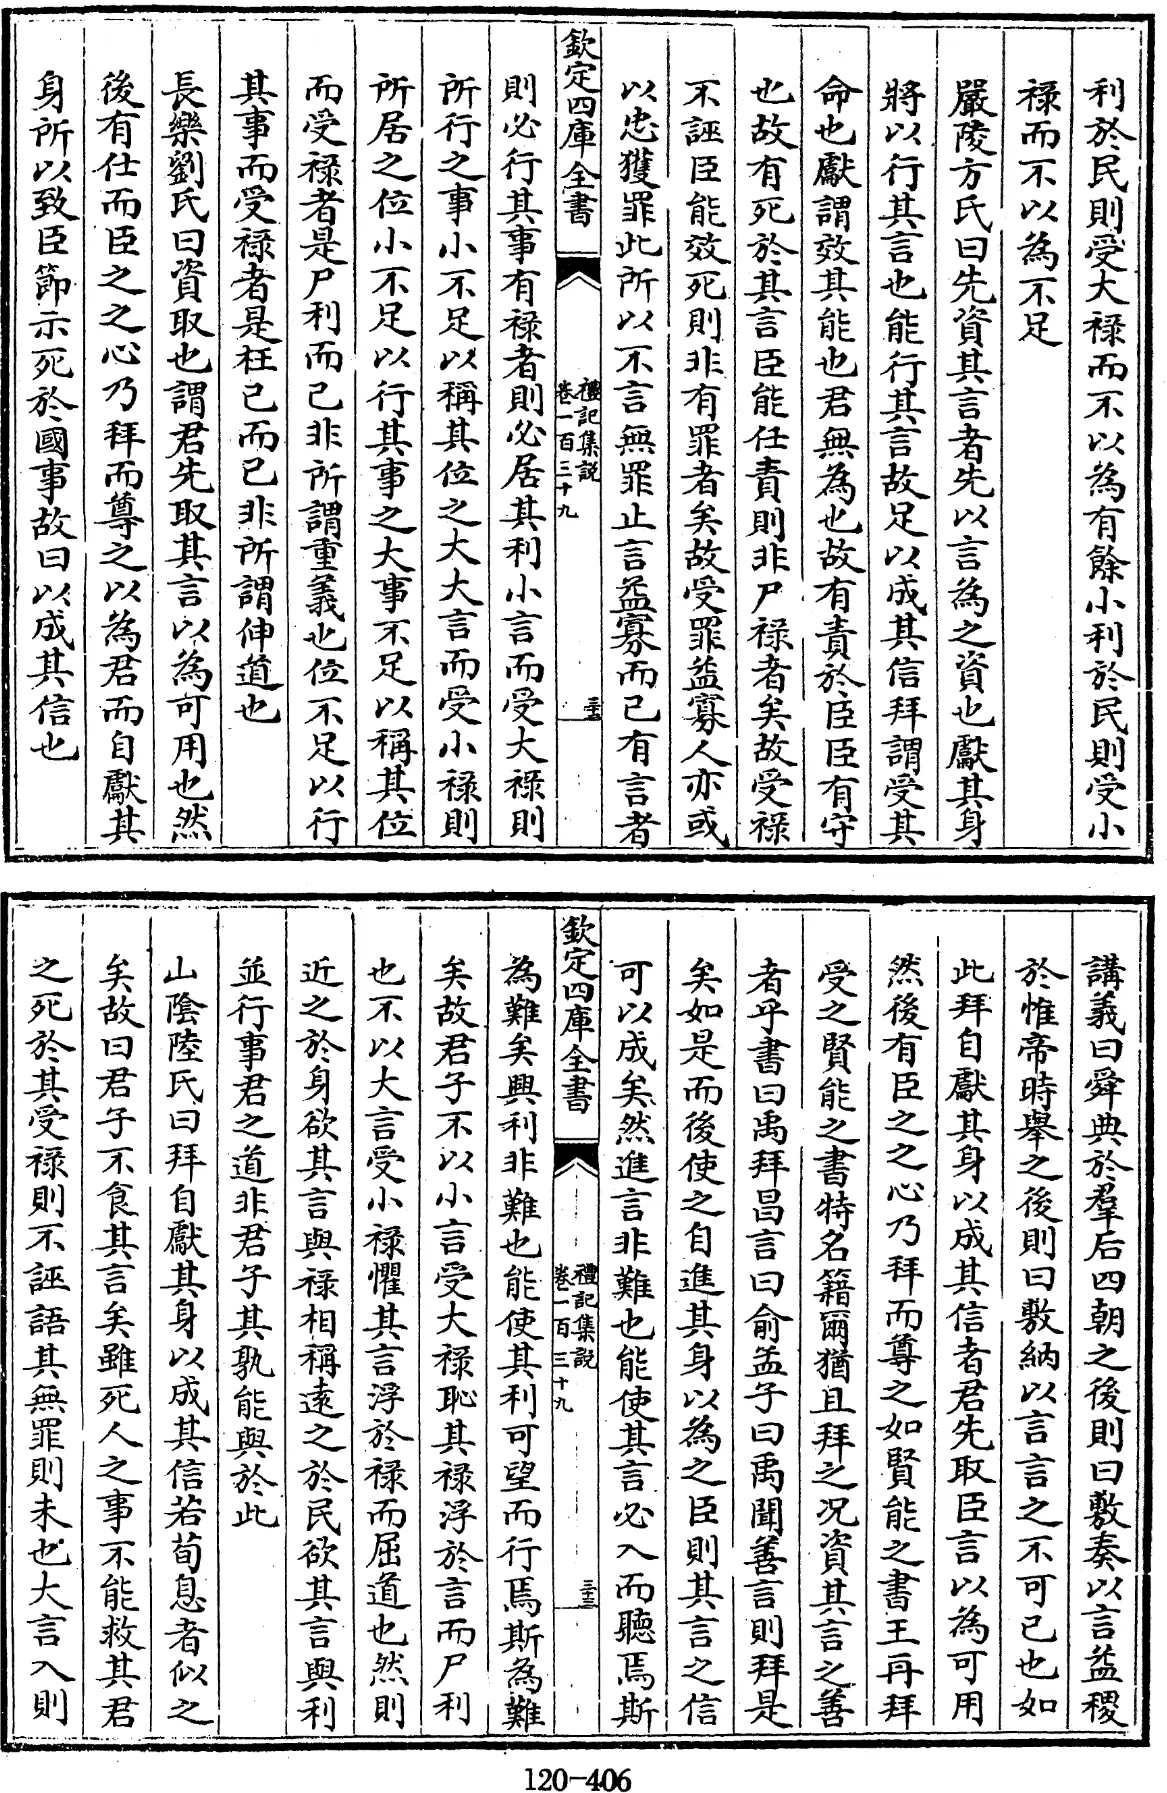 利於民則受大禄而不以為有餘小利於民則受小
禄而不以為不足
嚴陵方氏曰先資其言者先以言為之資也獻其身
將以行其言也能行其言故足以成其信拜謂受其
命也獻謂效其能也君無為也故有責於臣臣有守
也故有死於其言臣能任責則非尸禄者矣故受禄
不誣臣能效死則非有罪者矣故受罪益寡人亦或
以忠獲罪此所以不言無罪止言益寡而已有言者
欽定四庫全書
禮記集說
卷一百三十九
三十三
則必行其事有禄者則必居其利小言而受大禄則
所行之事小不足以稱其位之大大言而受小禄則
所居之位小不足以行其事之大事不足以稱其位
而受禄者是尸利而已非所謂重義也位不足以行
其事而受禄者是枉己而已非所謂伸道也
長樂劉氏曰資取也謂君先取其言以為可用也然
後有仕而臣之之心乃拜而尊之以為君而自獻其
身所以致臣節示死於國事故曰以成其信也
講義曰舜典於羣后四朝之後則曰敷奏以言益稷
於惟帝時舉之後則曰敷納以言言之不可已也如
此拜自獻其身以成其信者君先取臣言以為可用
然後有臣之之心乃拜而尊之如賢能之書王再拜
受之賢能之書特名籍爾猶且拜之况資其言之善
者乎書曰禹拜昌言曰俞孟子曰禹聞善言則拜是
矣如是而後使之自進其身以為之臣則其言之信
可以成矣然進言非難也能使其言必入而聽焉斯
欽定四庫全書
禮記集說
卷一百三十九
三十三
為難矣興利非難也能使其利可望而行焉斯為難
矣故君子不以小言受大禄恥其禄浮於言而尸利
也不以大言受小禄懼其言浮於禄而屈道也然則
近之於身欲其言與禄相稱遠之於民欲其言與利
並行事君之道非君子其孰能與於此
山陰陸氏曰拜自獻其身以成其信若荀息者似之
矣故曰君子不食其言矣雖死人之事不能救其君
之死於其受禄則不誣語其無罪則未也大言入則
120-406